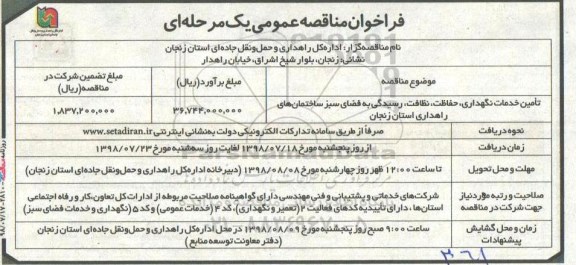 فراخوان مناقصه عمومی یک مرحله‌ای
نام مناقصه‌گزار: اداره‌کل راهداری و حمل‌ونقل جاده‌ای استان زنجان
نشانی: زنجان، بلوار شیخ اشراق، خیابان راهدار
موضوع مناقصه
مبلغ برآورد(ریال)
مبلغ تضمین شرکت در مناقصه(ریال)
تأمین خدمات نگهداری، حفاظت، نظافت، رسیدگی به فضای سبز ساختمان‌های راهداری استان زنجان
۳۶,۷۴۴,۰۰۰,۰۰۰
۱,۸۳۷,۲۰۰,۰۰۰
نحوه دریافت
صرفاً از طریق سامانه تدارکات الکترونیکی دولت به‌نشانی اینترنتی www.setadiran.ir
زمان دریافت
از روز پنجشنبه مورخ ۱۳۹۸/۰۷/۱۸ لغایت روز سه‌شنبه مورخ ۱۳۹۸/۰۷/۲۳
مهلت و محل تحویل
تا ساعت ۱۲:۰۰ ظهر روز چهارشنبه مورخ ۱۳۹۸/۰۸/۰۸ (دبیرخانه اداره‌کل راهداری و حمل‌ونقل جاده‌ای استان زنجان)
صلاحیت و رتبه موردنیاز جهت شرکت در مناقصه
شرکت‌های خدماتی و پشتیبانی و فنی مهندسی دارای گواهینامه صلاحیت مربوطه از ادارات کل تعاون،کار و رفاه اجتماعی
استان‌ها ، دارای تأییدیه کدهای فعالیت ۲ (تعمیر و نگهداری)، کد ۴ (خدمات عمومی) و کد ۵ (نگهداری و خدمات فضای سبز)
زمان و محل گشایش پیشنهادات
ساعت ۹:۰۰ صبح روز پنجشنبه مورخ ۱۳۹۸/۰۸/۰۹ در محل اداره‌کل راهداری و حمل‌ونقل جاده‌ای استان زنجان
(دفتر معاونت توسعه منابع)
۳۶۱